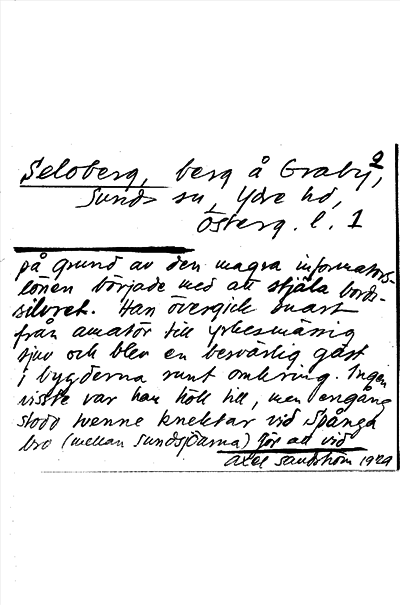 2
Seloberg, berg å Graby,
Sunds sn, Ydre hd,
Österg. l. 1
på grund av den magra informators-
lönen började med att stjäla bords-
silvret. Han övergick snart
från amatör till yrkesmässig
tjuv och blev en besvärlig gäst
i bygderna runt omkring. Ingen
visste var han höll till, men engång
stodo tvenne knektar vid Spånga
bro (mellan Sundsjöarna) för att vid
Axel Sandström 1929